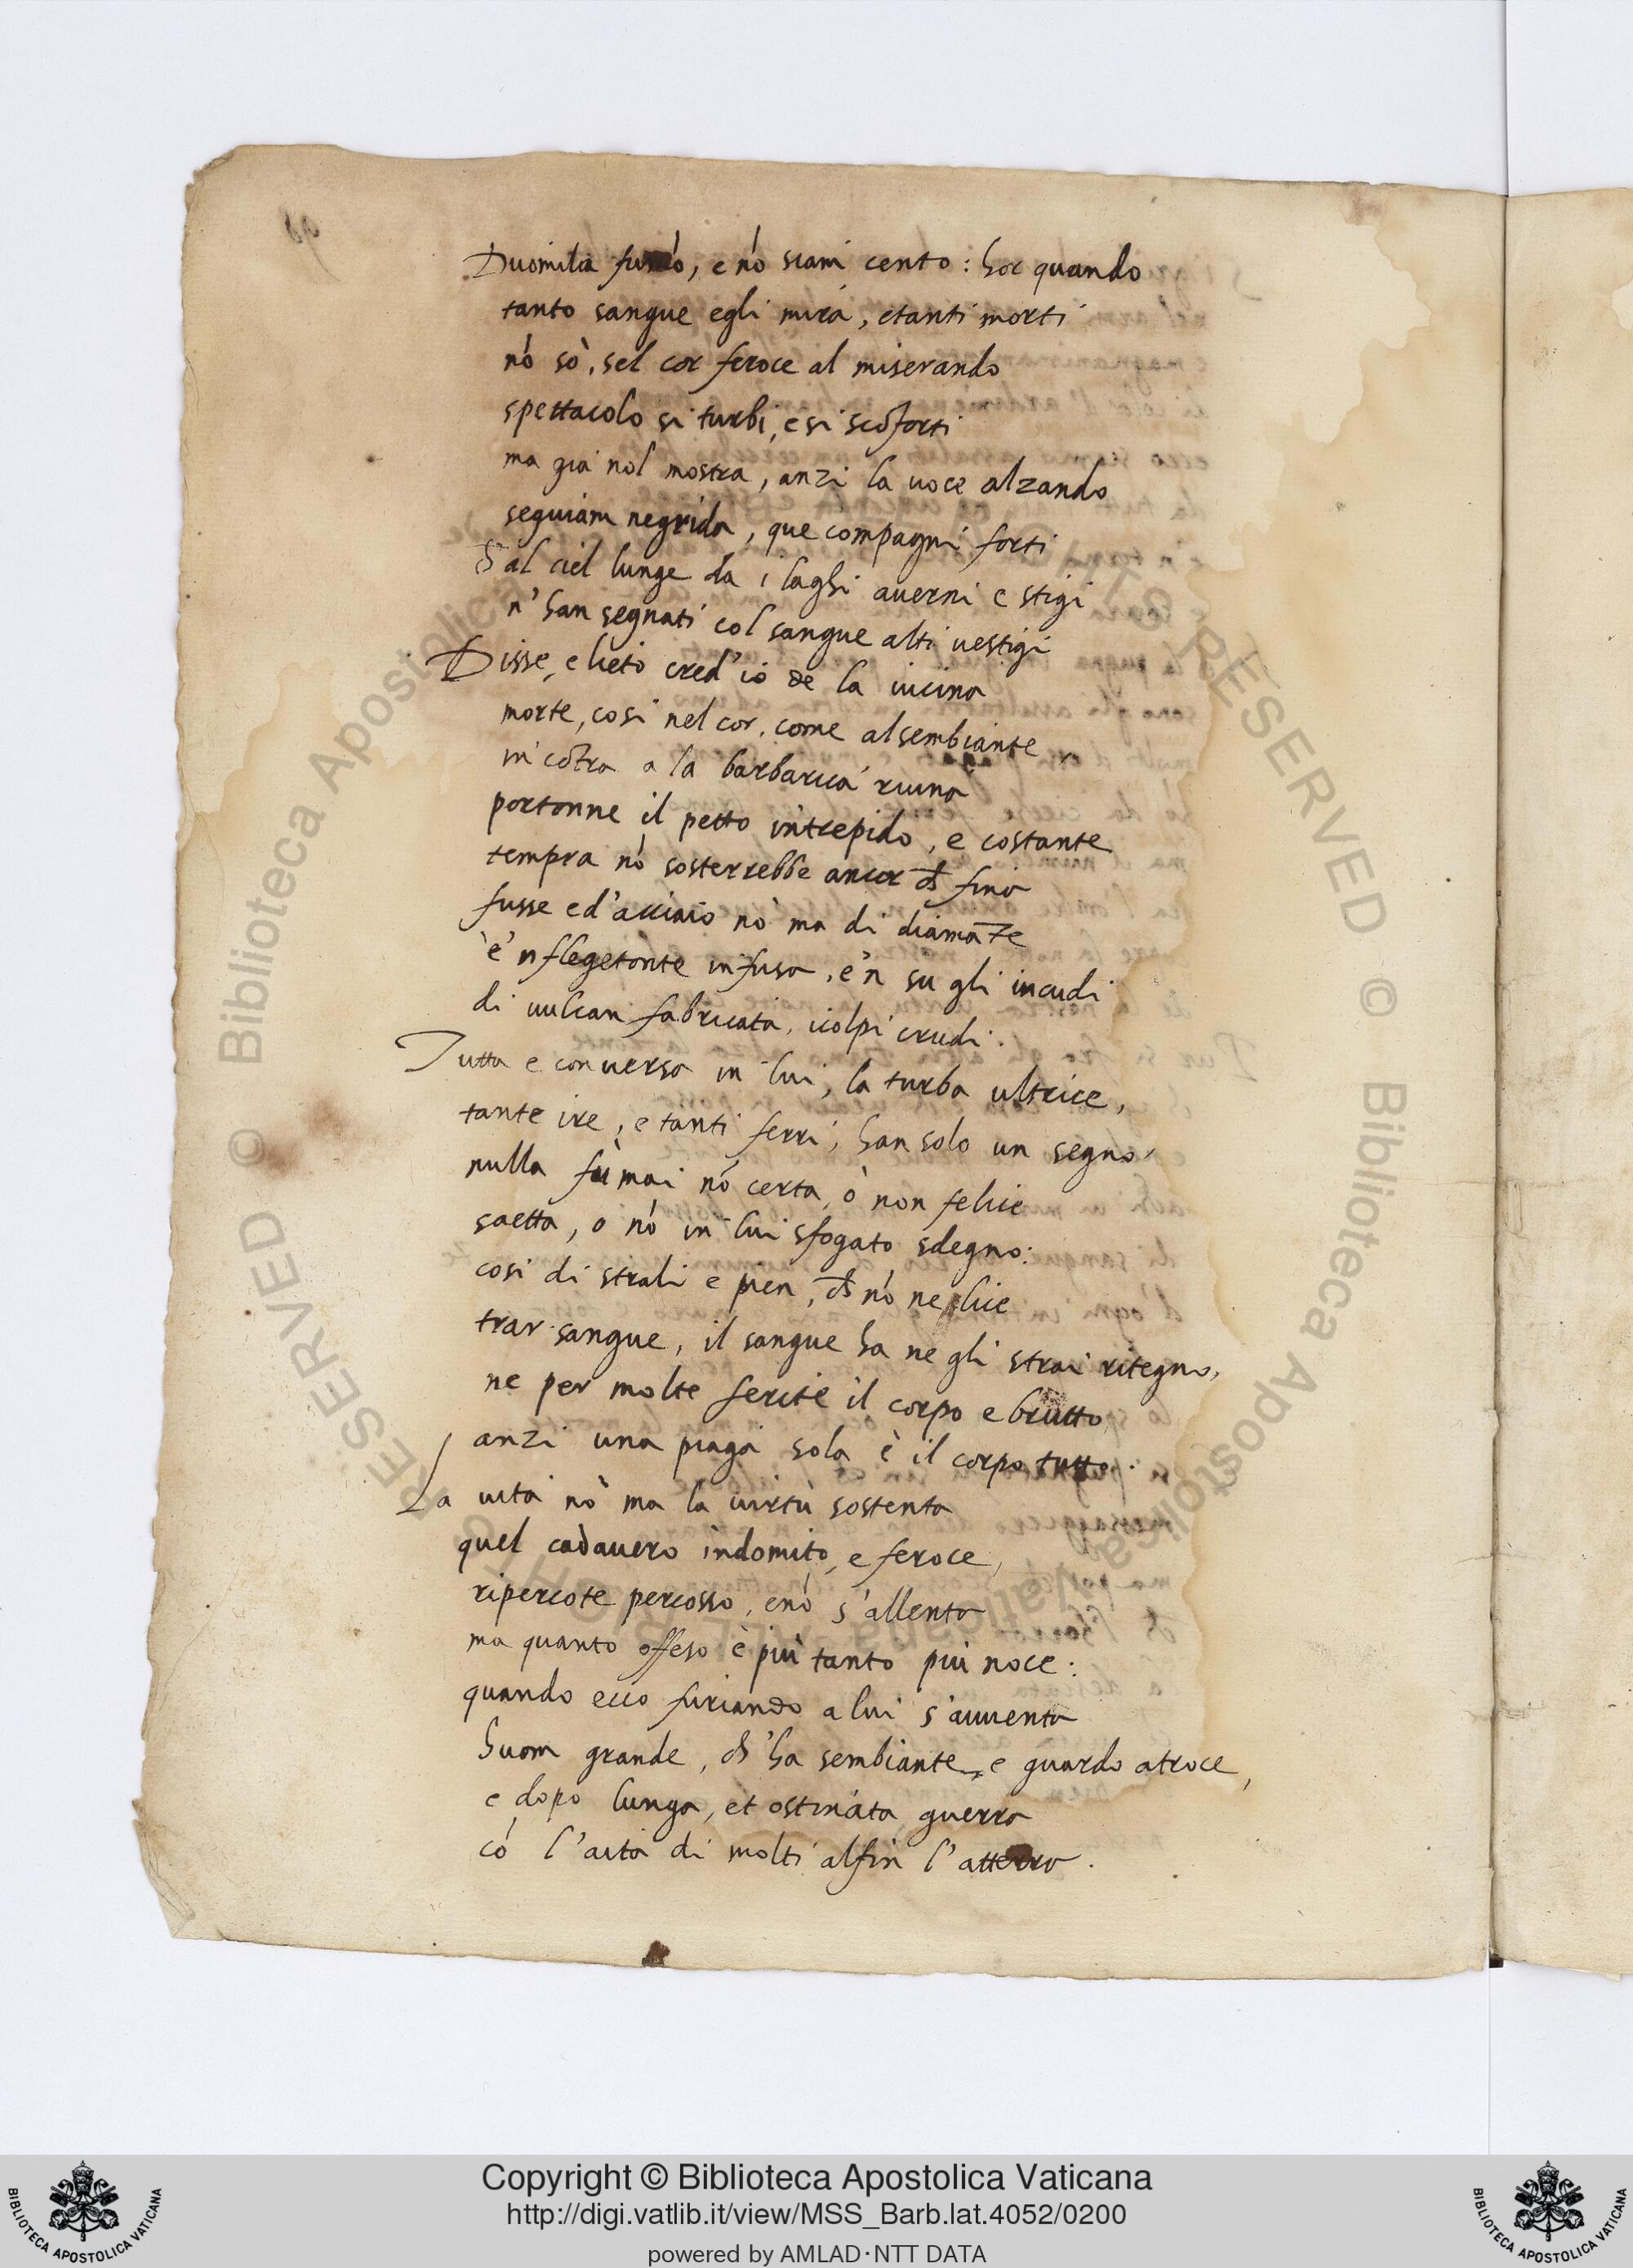 Duomila furò, e nó siam cento: hor quando
tanto sangue egli mira, e tanti morti
nó sò, sel cor feroce al miserando
spettacolo si turbi, e si scōforti
ma gia nol mostra, anzi la uoce alzando
seguiam negrida, que compagni forti
Ch'al ciel lunge da i laghi auerni e stigi
n'han segnati col sangue alti uestigi
Disse, e lieto cred'io de la uicina
morte, cosi nel cor, come al sembiante
in cōtra a la barbarica ruina
portonne il petto intrepido, e costante
tempra nó sosterrebbe ancor ch̄ fina
fusse e d'acciaio nó ma di diamāte
e'n flegetonte infusa, e'n su gli incudi
di uulcan fabricata, i colpi crudi.
Tutta e conuersa in lui, la turba ultrice,
tante ire, e tanti ferri, han solo un segno,
nulla fù mai nó certa, ò non felice
saetta, o nó in lui sfogato sdegno:
cosi di strali e pien, ch̄ nó ne lice
trar sangue, il sangue ha ne gli strai ritegno,
ne per molte ferite il corpo e brutto
anzi una piaga sola è il corpo tutto.
La uita nó ma la uirtù sostenta
quel cadauero indomito, e feroce,
ripercote percosso, e nó s'allenta
ma quanto offeso è più tanto più noce:
quando ecco furiando a lui s'auuenta
huom grande, ch'ha sembiante e guardo atroce,
e dopo lunga, et ostinata guerra
có l'aita di molti alfin l'atterra.
BIBLIOTECA APOSTOLICA VATICANA
Copyright © Biblioteca Apostolica Vaticana
http://digi.vatlib.it/view/MSS_Barb.lat.4052/0200
powered by AMLAD·NTT DATA
BIBLIOTECA APOSTOLICA VATICANA